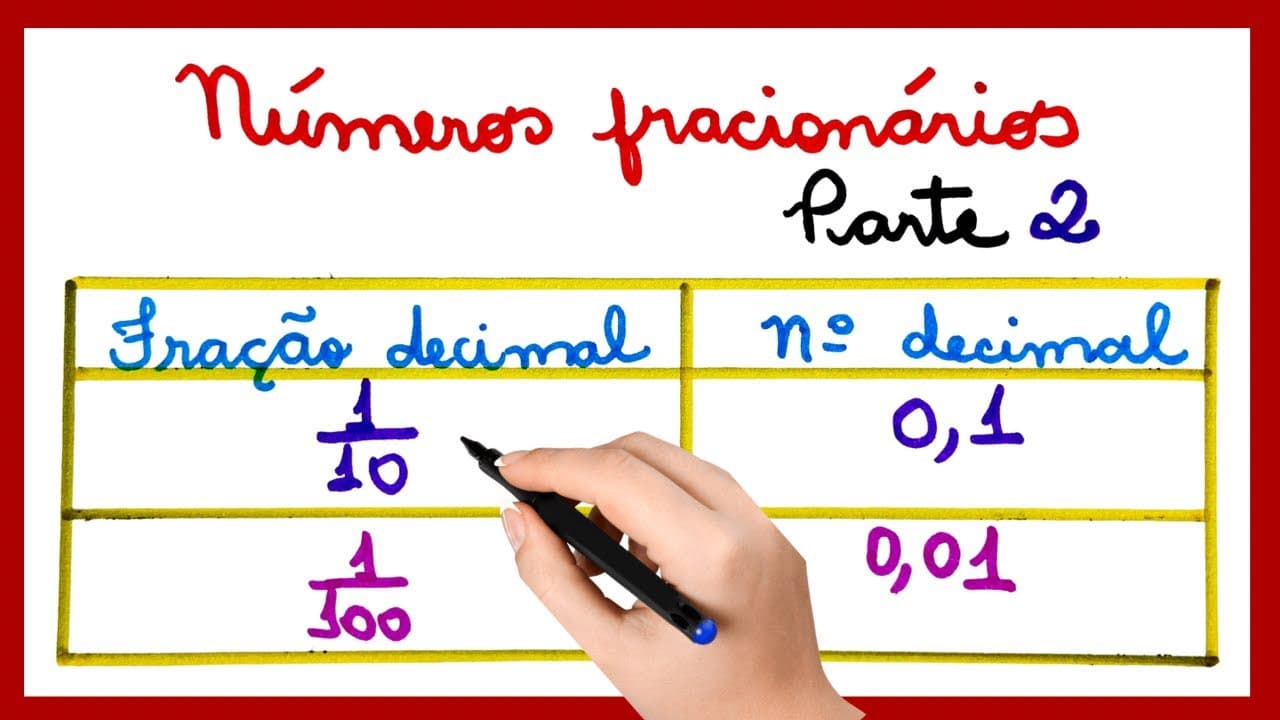 Números fracionários
Parte 2
Fração decimal nº decimal
1/10 0,1
1/100 0,01